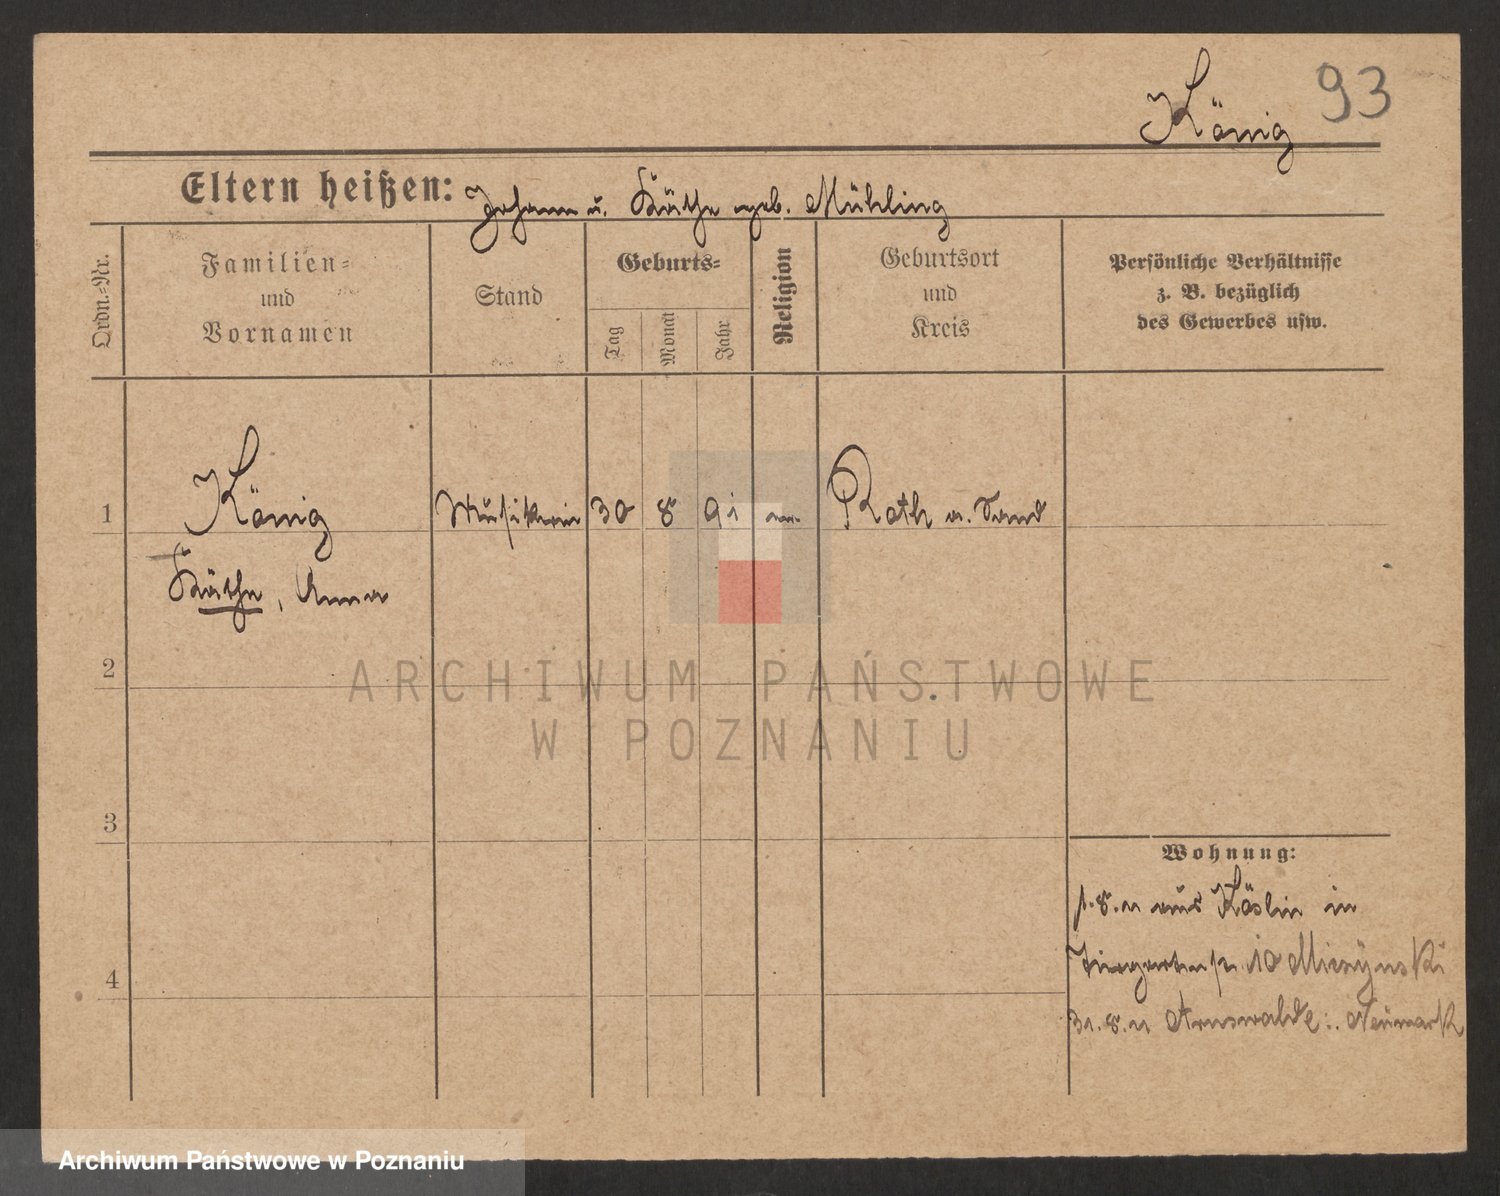 König 93
Eltern heißen: Johann u. Käthe geb. Mühling
Ordn.=Nr.
Familien=
und
Vornamen
Stand
Geburts=
Tag
Monat
Jahr
Religion
Geburtsort
und
Kreis
Persönliche Verhältnisse
z. B. bezüglich
des Gewerbes usw.
1 König Musikerin 30 8 91 Roth a. Sand
Käthe, Anna
2
ARCHIWUM PAŃSTWOWE
W POZNANIU
3
Wohnung:
1.8.11 aus Köslin in
Tiergartenstr 10
4
31.8.11 Arnswalde i. Neumark
Archiwum Państwowe w Poznaniu